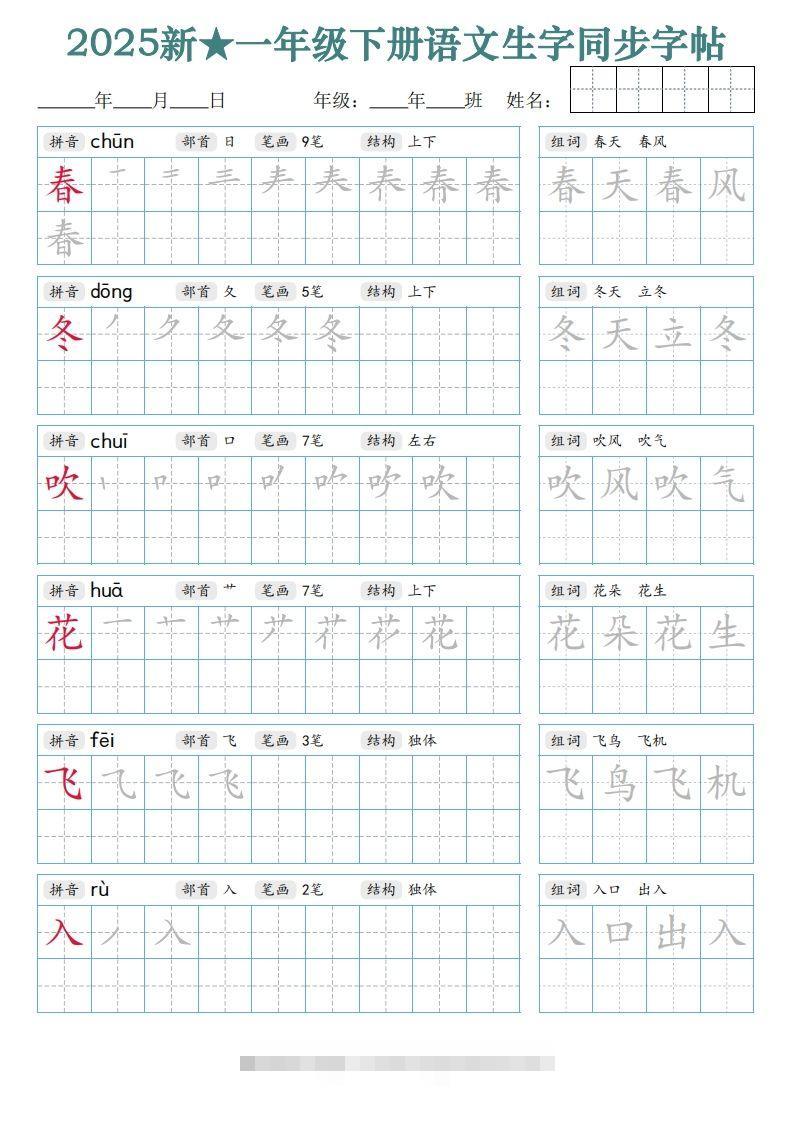 2025新★一年级下册语文生字同步字帖
______年____月____日 年级：____年____班 姓名：
拼音 chūn 部首 日 笔画 9笔 结构 上下 组词 春天 春风
春 春 天 春 风
春
拼音 dōng 部首 夂 笔画 5笔 结构 上下 组词 冬天 立冬
冬 冬 冬 天 立 冬
拼音 chuī 部首 口 笔画 7笔 结构 左右 组词 吹风 吹气
吹 吹 吹 风 吹 气
拼音 huā 部首 艹 笔画 7笔 结构 上下 组词 花朵 花生
花 花 花 朵 花 生
拼音 fēi 部首 飞 笔画 3笔 结构 独体 组词 飞鸟 飞机
飞 飞 飞 鸟 飞 机
拼音 rù 部首 入 笔画 2笔 结构 独体 组词 入口 出入
入 入 入 口 出 入